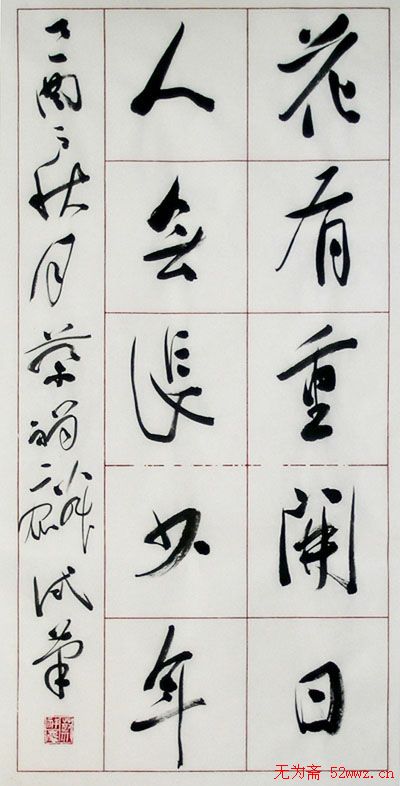 花有重開日
人会長少年
丁酉之秋月蔡祥麟試筆
无为斋 52wwz.cn